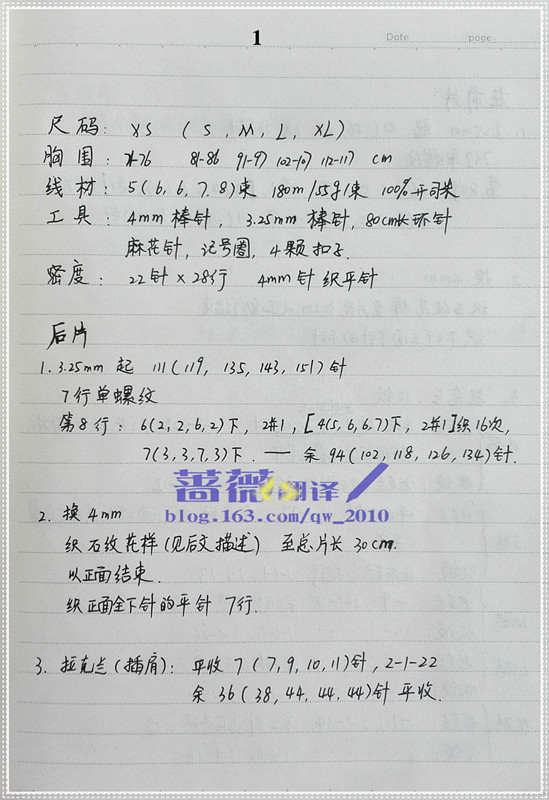 1
Date page
尺码: XS ( S, M, L, XL)
胸围: 71-76 81-86 91-97 102-107 112-117 cm
线材: 5(6,6,7,8)束 180m/55g/束 100%开司米
工具: 4mm棒针, 3.25mm棒针, 80cm长环针
麻花针, 记号圈, 4颗扣子.
密度: 22针×28行 4mm针织平针
后片
1. 3.25mm 起 111(119, 135, 143, 151)针
7行单螺纹
第8行: 6(2,2,6,2)下, 2并1, [4(5,6,6,7)下, 2并1]织16次,
7(3,3,7,3)下. — 余 94(102, 118, 126, 134)针.
蔷薇翻译
blog.163.com/qw_2010
2. 换4mm
织石纹花样(见后文描述) 至总片长 30cm.
以正面结束.
织正面全下针的平针 7行.
3. 拉克兰(插肩): 平收 7 (7, 9, 10, 11)针, 2-1-22
余 36(38, 44, 44, 44)针 平收.